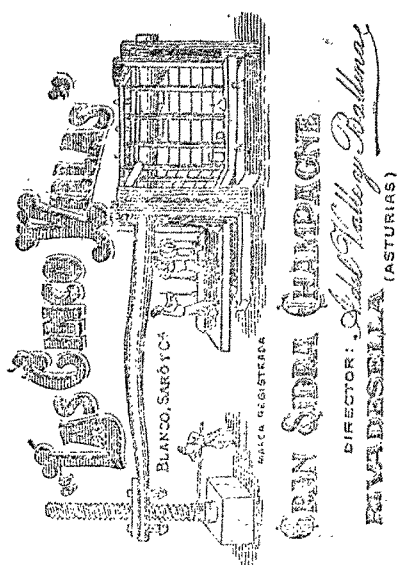 "LAS CINCO VILLAS"
BLANCO, SARÓ Y Cª
MARCA REGISTRADA
GRAN SIDRA CHAMPAGNE
DIRECTOR: del Valle y Ballina
RIVADESELLA
(ASTURIAS)